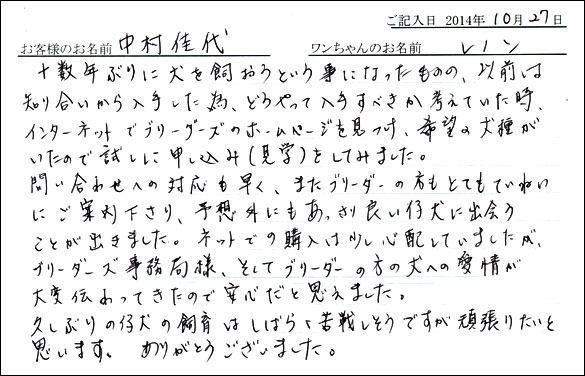 ご記入日 2014年 10月 27日
お客様のお名前 中村佳代 ワンちゃんのお名前 レノン
十数年ぶりに犬を飼おうという事になったものの、以前は
知り合いから入手した為、どうやって入手すべきか考えていた時、
インターネットでブリーダーズのホームページを見つけ、希望の犬種が
いたので試しに申し込み(見学)をしてみました。
問い合わせへの対応も早く、またブリーダーの方もとてもていねい
にご案内下さり、予想外にもあっさり良い仔犬に出会う
ことが出きました。ネットでの購入は少し心配していましたが、
ブリーダーズ事務局様、そしてブリーダーの方の犬への愛情が
大変伝わってきたので安心だと思えました。
久しぶりの仔犬の飼育はしばらく苦戦しそうですが頑張りたいと
思います。 ありがとうございました。